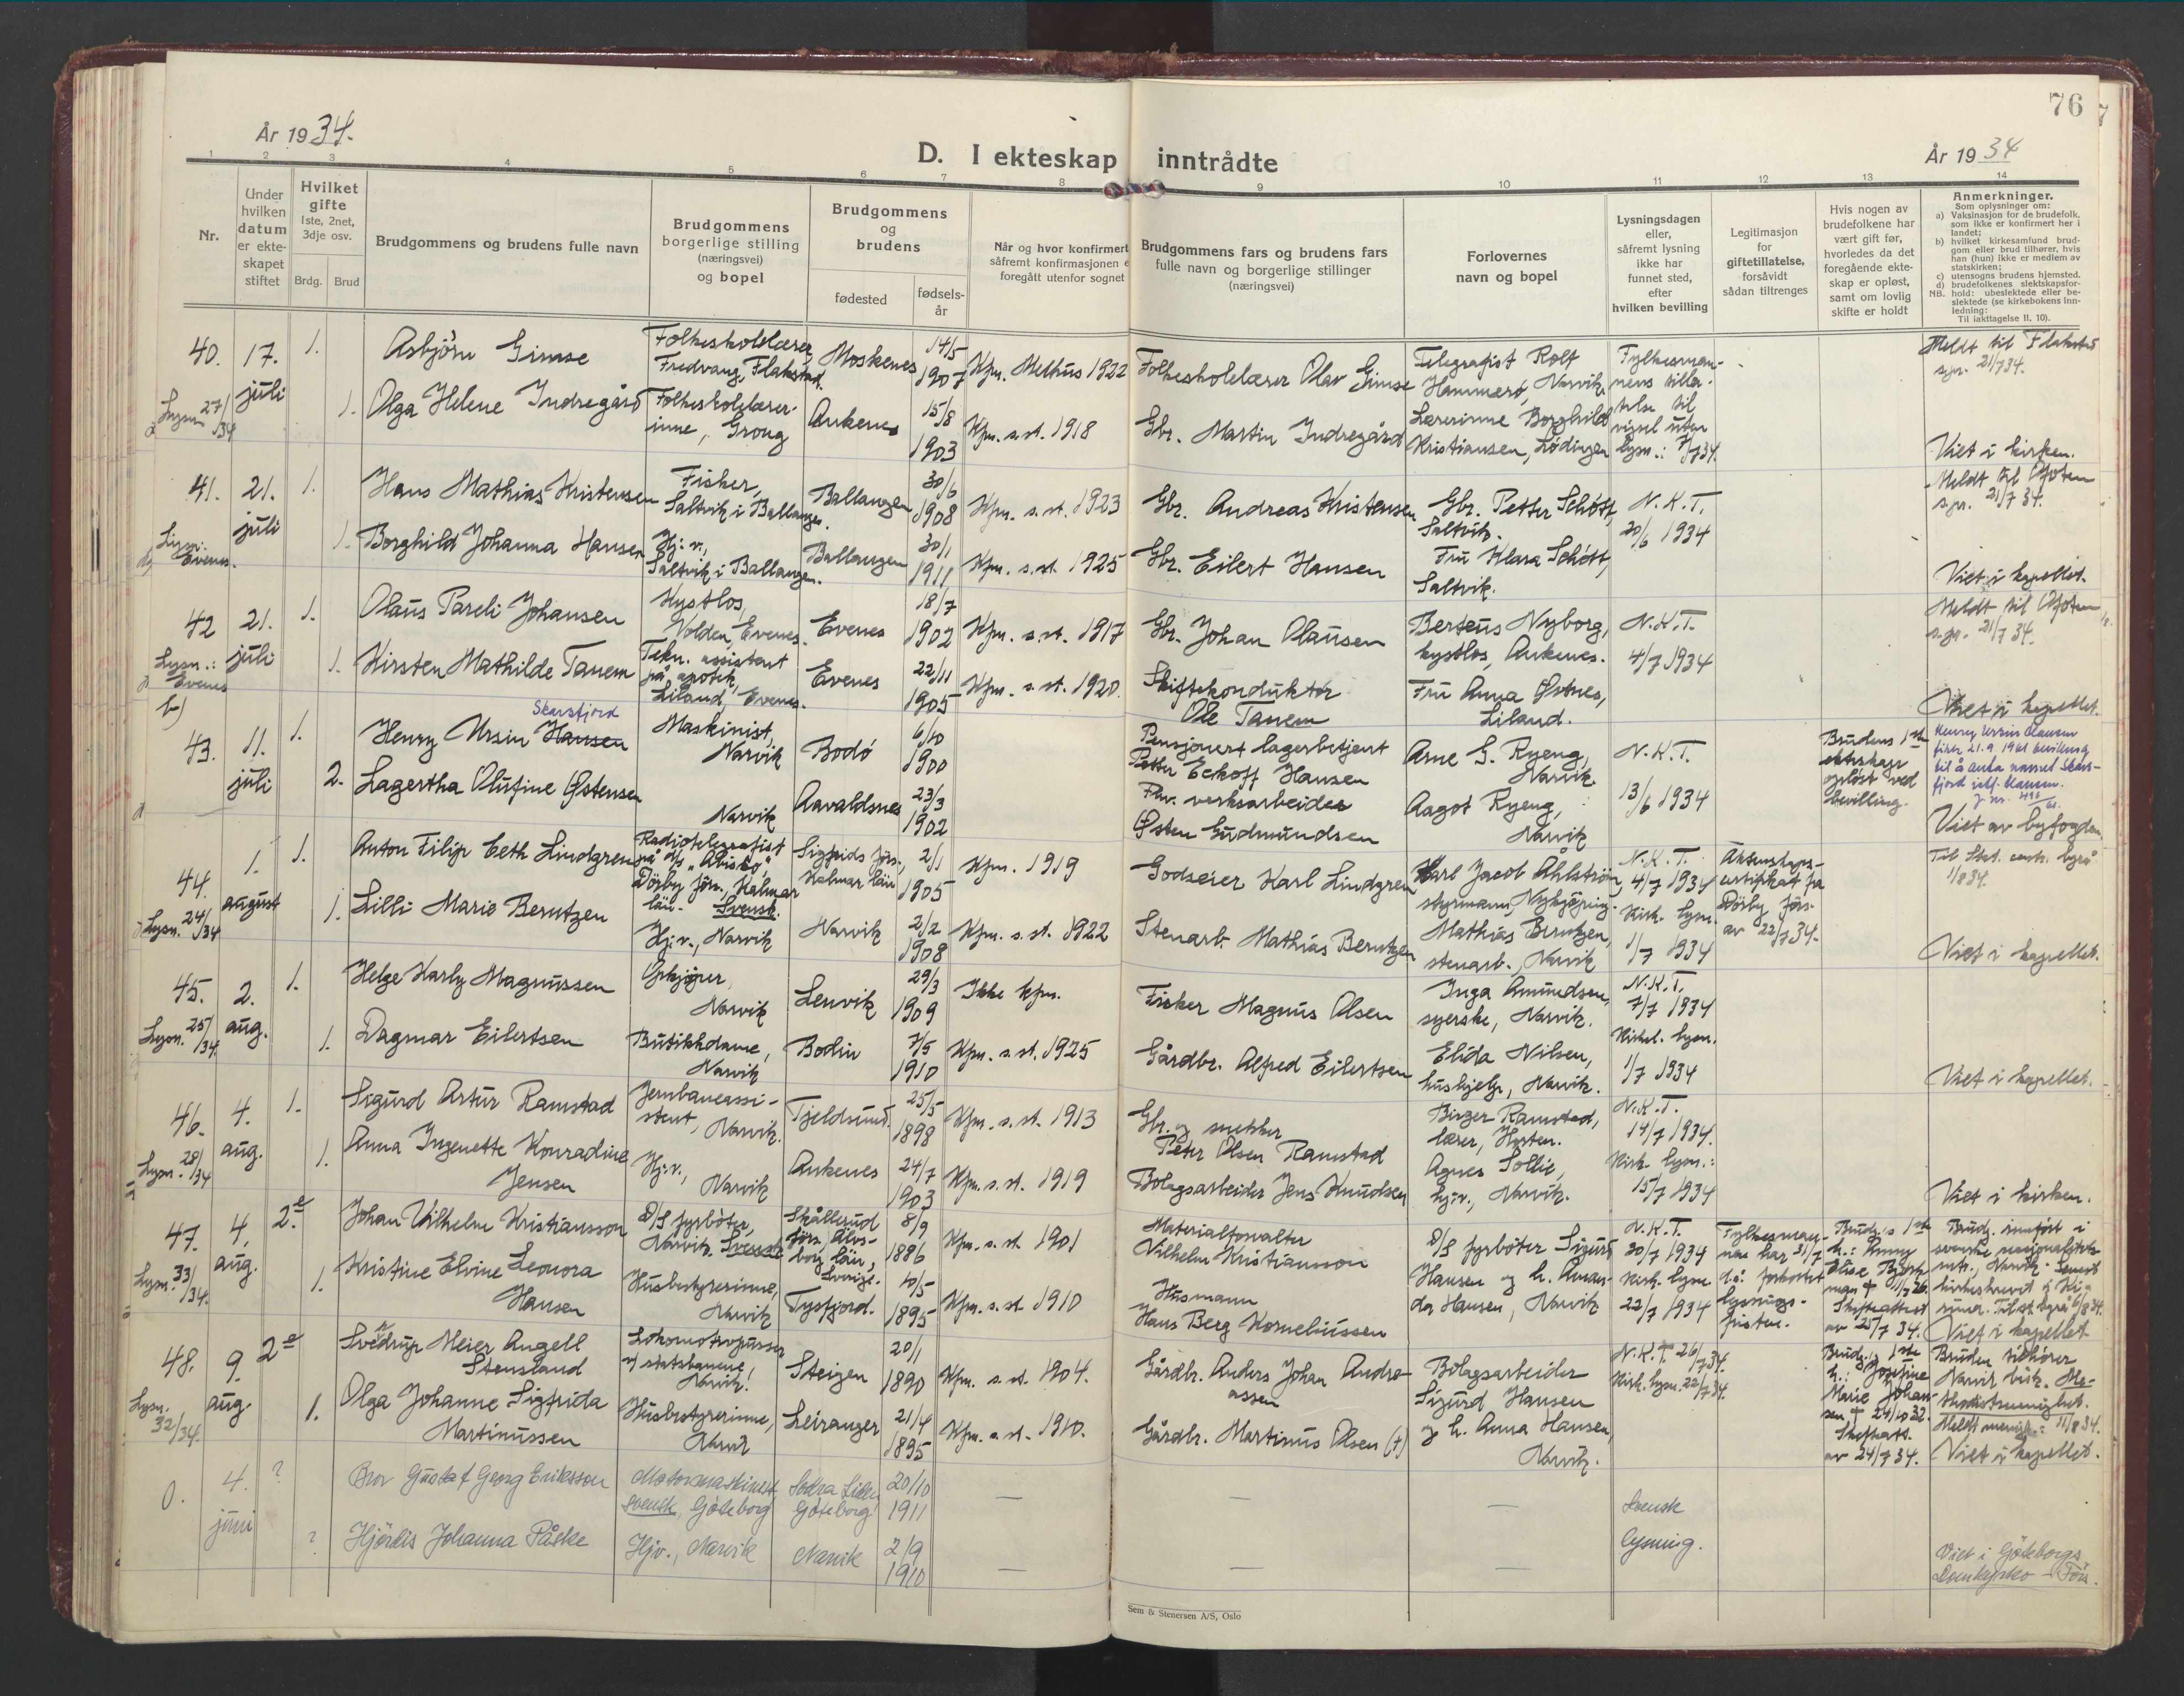 76
År 1934.
D. I ekteskap inntrådte
År 1934
1 2 3 4 5 6 7 8 9 10 11 12 13 14
Nr.
Under hvilken datum er ekteskapet stiftet
Hvilket gifte
1ste, 2net, 3dje osv.
Brdg. Brud
Brudgommens og brudens fulle navn
Brudgommens borgerlige stilling (næringsvei) og bopel
Brudgommens og brudens
fødested
fødselsår
Når og hvor konfirmert
såfremt konfirmasjonen e
foregått utenfor sognet
Brudgommens fars og brudens fars
fulle navn og borgerlige stillinger
(næringsvei)
Forlovernes
navn og bopel
Lysningsdagen
eller,
såfremt lysning
ikke har
funnet sted,
efter
hvilken bevilling
Legitimasjon
for
giftetillatelse,
forsåvidt
sådan tiltrenges
Hvis nogen av
brudefolkene har
vært gift før,
hvorledes da det
foregående ekte-
skap er opløst,
samt om lovlig
skifte er holdt
Anmerkninger.
Som oplysninger om:
a) Vaksinasjon for de brudefolk,
som ikke er konfirmert her i
landet;
b) hvilket kirkesamfund brud-
gom eller brud tilhører, hvis
han (hun) ikke er medlem av
statskirken;
c) utensogns brudens hjemsted.
d) brudefolkenes slektskapsfor-
NB. hold: ubeslektede eller be-
slektede (se kirkebokens Inn-
ledning:
Til iakttagelse II, 10).
40. 17. juli 1. Asbjörn Gimse
Folkeskolelærer, Fredvang, Flakstad.
Moskenes 14/5 1907 Kfm. Melhus 1922
Folkeskolelærer Olav Gimse
Telegrafist Rolf Hammerø, Narvik
Fylkesmannens tillatelse til vigsel uten lysn.: 7/7 34.
Meldt til Flakstad spr. 21/7 34.
Lysn. 27/34
1. Olga Helene Indregård
Folkeskolelærerinne, Grong
Ankenes 15/8 1903 Kfm. s. st. 1918
Gbr. Martin Indregård
Lærerinne Borghild Kristiansen, Lødingen
Viet i kirken.
41. 21. juli 1. Hans Mathias Kristensen
Fisker, Saltvik i Ballangen.
Ballangen 30/6 1908 Kfm. s. st. 1923
Gbr. Andreas Kristensen
Gbr. Petter Schøtt, Saltvik.
N.K.T. 20/6 1934
Meldt til Ofoten spr. 21/7 34.
Lysn.: Evenes.
1. Borghild Johanna Hansen
Hj.v., Saltvik i Ballangen.
Ballangen 30/1 1911 Kfm. s. st. 1925
Gbr. Eilert Hansen
Fru Klara Schøtt, Saltvik.
Viet i kapellet.
42 21. juli 1. Olaus Pareli Johansen
Kystlos, Volden, Evenes.
Evenes 18/7 1902 Kfm. s. st. 1917
Gbr. Johan Olaussen
Berteus Nyborg, kystlos, Ankenes.
N.K.T. 4/7 1934
Meldt til Ofoten s.pr. 21/7 34.
Lysn.: Evenes
1. Kirsten Mathilde Tanem
Tekn. assistent på apotek, Liland, Evenes.
Evenes 22/11 1905 Kfm. s. st. 1920.
Skiftekonduktør Ole Tanem
Fru Anna Østnes, Liland.
Viet i kapellet.
b)
43. 11. juli 1. Henry Ursin Hansen
Skarsfjord
Maskinist, Narvik
Bodø 6/10 1900
Pensjonert lagerbetjent Petter Eckoff Hansen
Arne G. Ryeng, Narvik.
N.K.T. 13/6 1934
Brudens 1ste ekteskap opløst ved bevilling.
Henry Ursin Hansen fikk 21.9 1961 bevilling til å anta navnet Skarsfjord istf. Hansen.
2. Lagertha Olufine Østensen
Narvik
Avaldsnes 23/3 1902
Fhv. verksarbeider Østen Gudmundsen
Aagot Ryeng, Narvik
Viet av byfogden.
44. 1. august 1. Anton Filip Eeth Lindgren
Radiotelegrafist på d/s "Abisko", Dörby förs., Kalmar län. Svensk.
Sigfrids förs., Kalmar län 2/1 1905 Kfm. 1919
Godseier Karl Lindgren
Karl Jacob Åhlström, styrmann, Nykjøping.
N.K.T. 4/7 1934
Kirk. lysn. 1/7 1934
Äktenskapscertifikat fra Dörby förs. av 22/7 34.
Til Stat. centr. byrå 1/8 34.
Lysn. 24/34
1. Lilli Marie Berntzen
Hj.v., Narvik
Narvik 2/2 1908 Kfm. s. st. 1922
Stenarb. Mathias Berntzen
Mathias Berntzen, stenarb., Narvik
Viet i kapellet.
45. 2. aug. 1. Helge Karly Magnussen
Opkjøper, Narvik
Lenvik 29/3 1909 Ikke kfm.
Fisker Magnus Olsen
Inga Amundsen, syerske, Narvik.
N.K.T. 7/7 1934
Kirkel. lysn. 1/7 1934
Lysn. 25/34.
1. Dagmar Eilertsen
Butikkdame, Narvik
Bodin 7/5 1910 Kfm. s. st. 1925
Gårdbr. Alfred Eilertsen
Elida Nilsen, hushjelp, Narvik.
Viet i kapellet.
46. 4. aug. 1. Sigurd Artur Ramstad
Jernbaneassistent, Narvik.
Tjeldsund 25/5 1898 Kfm. s. st. 1913
Gbr. og snekker Peter Olsen Ramstad
Birger Ramstad, lærer, Horten.
N.K.T. 14/7 1934.
Kirk. lysn.: 15/7 1934
Lysn. 28/34
1. Anna Ingenette Konradine Jensen
Hj.v., Narvik
Ankenes 24/7 1903 Kfm. s. st. 1919
Bolagsarbeider Jens Knudsen
Agnes Sollie, hj.v., Narvik.
Viet i kirken.
47. 4. aug. 2.e Johan Vilhelm Kristiansson
D/S fyrbøter, Narvik. Svensk
Skållerud förs., Älvsborg län, Sverige. 8/9 1886 Kfm. s. st. 1901
Materialforvalter Vilhelm Kristiansson
D/S fyrbøter Sigurd Hansen og h. Amanda Hansen, Narvik
N.K.T. 30/7 1934
Kirk. lysn. 22/7 1934
Fylkesmannen har 31/7 d.å. forkortet lysningsfristen.
Skifteattest av 25/7 34.
Lysn. 33/34.
1. Kristine Elvine Leonora Hansen
Husbestyrerinne, Narvik
Tysfjord. 10/5 1895 Kfm. s. st. 1910
Husmann Hans Berg Korneliussen
Viet i kapellet
48. 9. aug. 2e Svedrup Meier Angell Stensland
Lokomotivpusser v/ statsbanene, Narvik.
Steigen 20/1 1890 Kfm. s. st. 1904.
Gårdbr. Anders Johan Andreassen
Bolagsarbeider Sigurd Hansen og h. Anna Hansen, Narvik.
N.K.T. 26/7 34.
Kirk. lysn. 22/7 34.
Brudg.s 1ste h.: Josefine Marie Johansen † 24/10 32. Skifteatt. av 24/7 34.
Bruden tilhører Narvik bisk. Metodistmenighet.
Meldt menigh.: 11/8 34.
Lysn. 32/34.
1. Olga Johanne Sigfrida Martinussen
Husbestyrerinne, Narvik
Leiranger 21/4 1895 Kfm. s. st. 1910.
Gårdbr. Martinus Olsen (†)
Viet i kapellet.
0. 4. juni ? Bror Gustaf Georg Eriksson
Motormaskinist, svensk, Göteborg
Göteborg 20/10 1911 —
—
—
Svensk lysning.
? Hjördis Johanna Påske
Hjv., Narvik
Narvik 2/9 1910 —
—
—
Viet i Göteborgs Domkyrko-Förs.
Sem & Stenersen A/S, Oslo